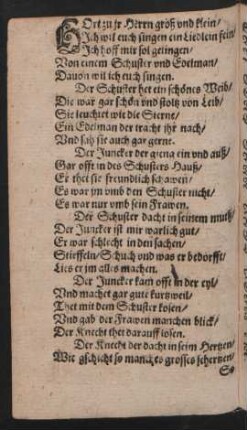 HOrt zu jr Herrn groß vnd klein/
Ich wil euch singen ein Liedlein fein/
Ich hoff mir sol gelingen/
Von einem Schuster vnd Edelman/
Dauon wil ich euch singen.
Der Schuster het ein schönes Weib/
Die war gar schön vnd stoltz von Leib/
Sie leuchtet wie die Sterne/
Ein Edelman der tracht jhr nach/
Vnd sah sie auch gar gerne.
Der Juncker der gieng ein vnd auß/
Gar offt in des Schusters Hauß/
Er thet sie freundlich schawen/
Es war ym vmb den Schuster nicht/
Es war nur vmb sein Frawen.
Der Schuster dacht in seinem muth/
Der Juncker ist mir warlich gut/
Er war schlecht in den sachen/
Stieffeln/Schuch vnd was er bedorfft/
Lies er jm alles machen.
Der Juncker kam offt in der eyl/
Vnd machet gar gute kurtzweil/
Thet mit dem Schuster kosen/
Vnd gab der Frawen manchen blick/
Der Knecht thet darauff losen.
Der Knecht der dacht in seim Hertzen/
Wie gschicht so manches grosses schertzen/
So